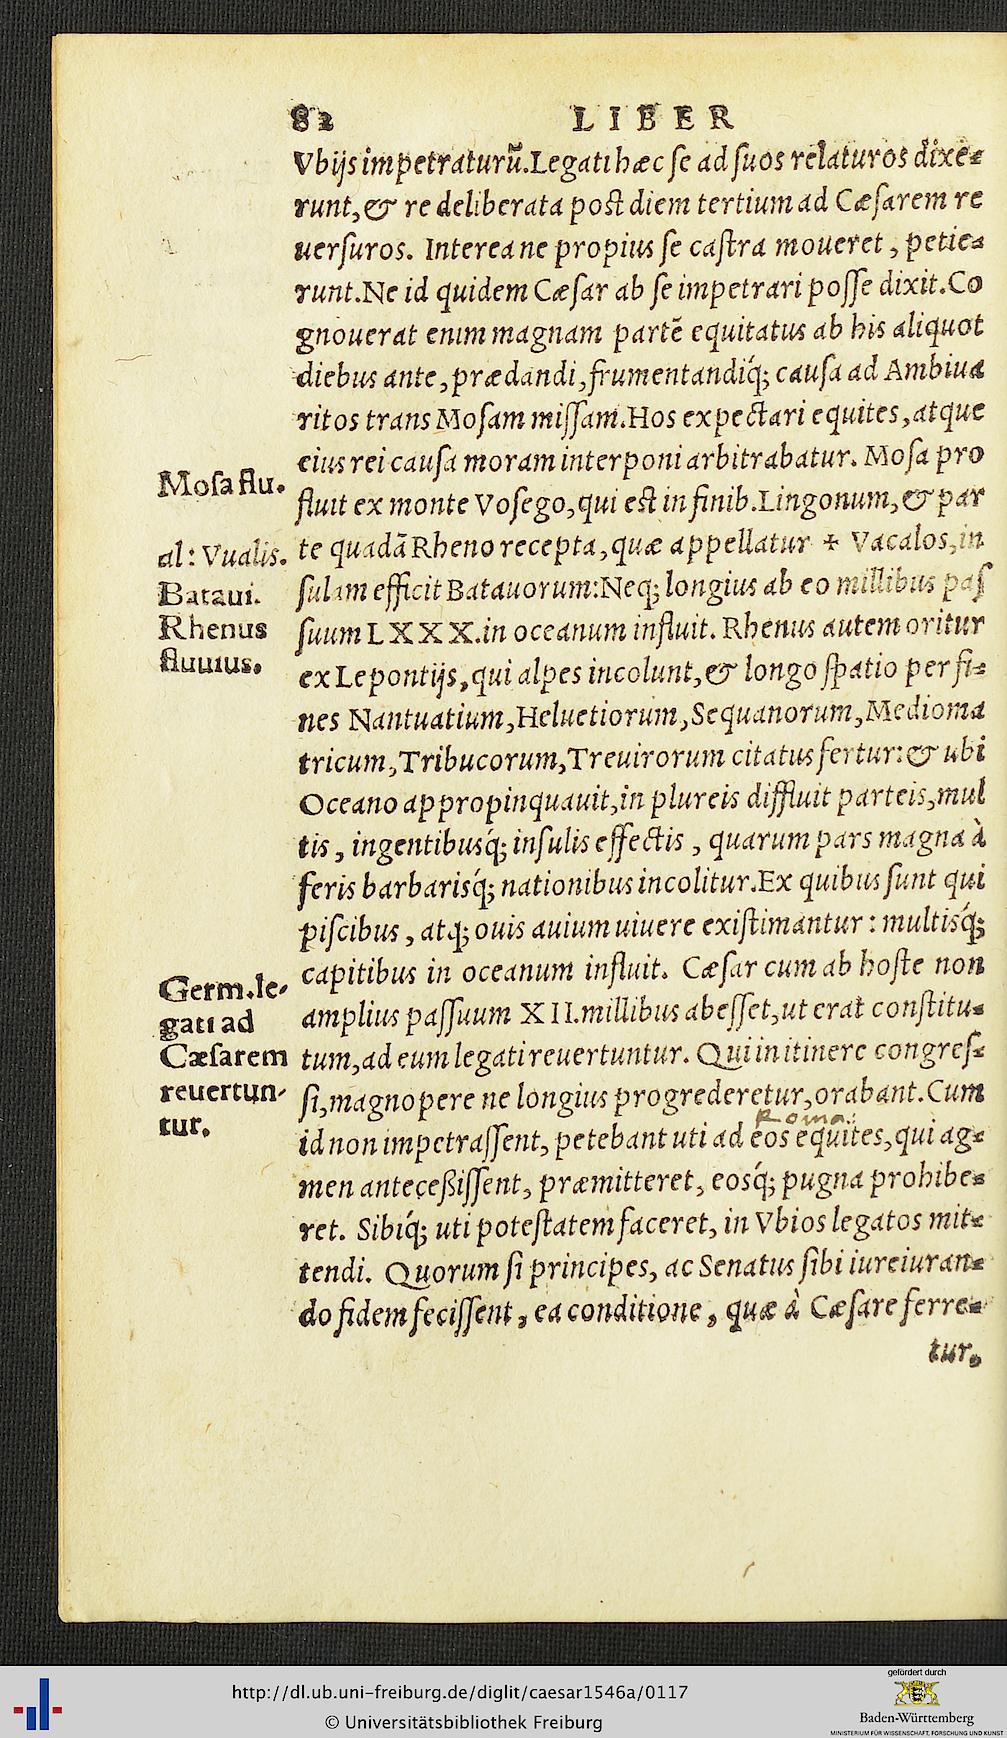 82 LIBER
Vbijs impetraturũ. Legati hæc se ad suos relaturos dixe-
runt, & re deliberata post diem tertium ad Cæsarem re
uersuros. Interea ne propius se castra moueret, petie-
runt. Ne id quidem Cæsar ab se impetrari posse dixit. Co
gnouerat enim magnam partẽ equitatus ab his aliquot
diebus ante, prædandi, frumentandiq́; causa ad Ambiua
ritos trans Mosam missam. Hos expectari equites, atque
eius rei causa moram interponi arbitrabatur. Mosa pro
Mosa flu.
fluit ex monte Vosego, qui est in finib. Lingonum, & par
te quadã Rheno recepta, quæ appellatur ✢ Vacalos, in
al: Vualis.
sulam efficit Batauorum: Neq; longius ab eo millibus pas
Bataui.
suum LXXX. in oceanum influit. Rhenus autem oritur
Rhenus
fluuius.
ex Lepontijs, qui alpes incolunt, & longo spatio per fi-
nes Nantuatium, Heluetiorum, Sequanorum, Medioma
tricum, Tribucorum, Treuirorum citatus fertur: & ubi
Oceano appropinquauit, in plureis diffluit parteis, mul
tis, ingentibusq́; insulis effectis, quarum pars magna à
feris barbarisq́; nationibus incolitur. Ex quibus sunt qui
piscibus, atq; ouis auium uiuere existimantur: multisq́;
capitibus in oceanum influit. Cæsar cum ab hoste non
Germ. le-
gati ad
Cæsarem
reuertun-
tur.
amplius passuum XII. millibus abesset, ut erat constitu-
tum, ad eum legati reuertuntur. Qui in itinere congres-
si, magnopere ne longius progrederetur, orabant. Cum
Roma:
id non impetrassent, petebant uti ad eos equites, qui ag-
men anteceßissent, præmitteret, eosq́; pugna prohibe-
ret. Sibiq́; uti potestatem faceret, in Vbios legatos mit-
tendi. Quorum si principes, ac Senatus sibi iureiuran-
do fidem fecissent, ea conditione, quæ à Cæsare ferre-
tur,
http://dl.ub.uni-freiburg.de/diglit/caesar1546a/0117
© Universitätsbibliothek Freiburg
gefördert durch
Baden-Württemberg
MINISTERIUM FÜR WISSENSCHAFT, FORSCHUNG UND KUNST